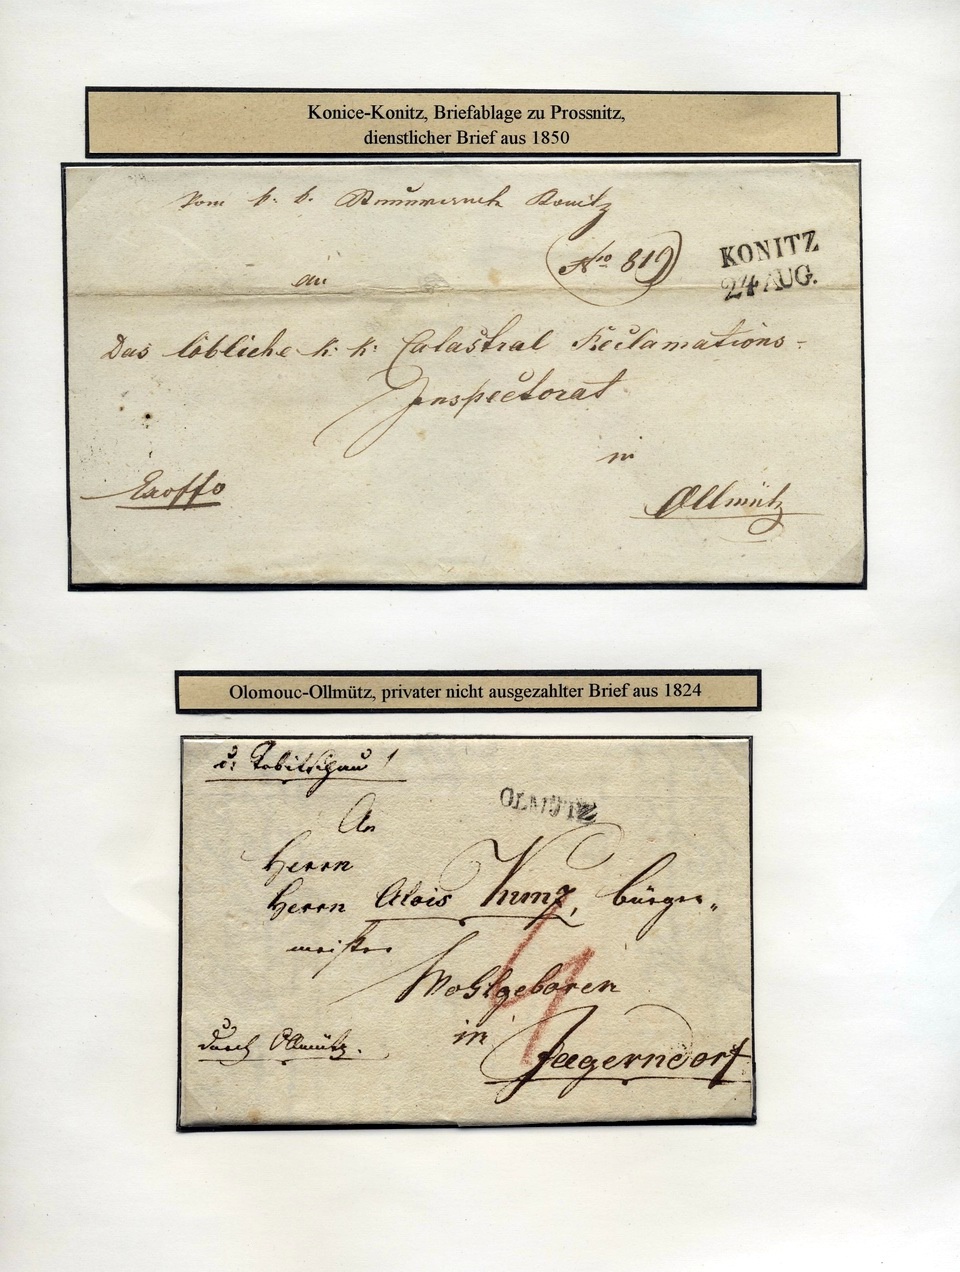 Konice-Konitz, Briefablage zu Prossnitz,
dienstlicher Brief aus 1850
Vom k. k. Konitz
No 819
KONITZ
24 AUG.
an
Das löbliche k: k: Catastral Reclamations-
Inspectorat
in
Exoffo
Ollmütz
Olomouc-Ollmütz, privater nicht ausgezahlter Brief aus 1824
v: Tobitschau
OLMÜTZ
An
Herrn
Herrn Alois Kunz, bürger„
meister
Wohlgeboren
in
durch Ollmütz.
Jaegerndorf